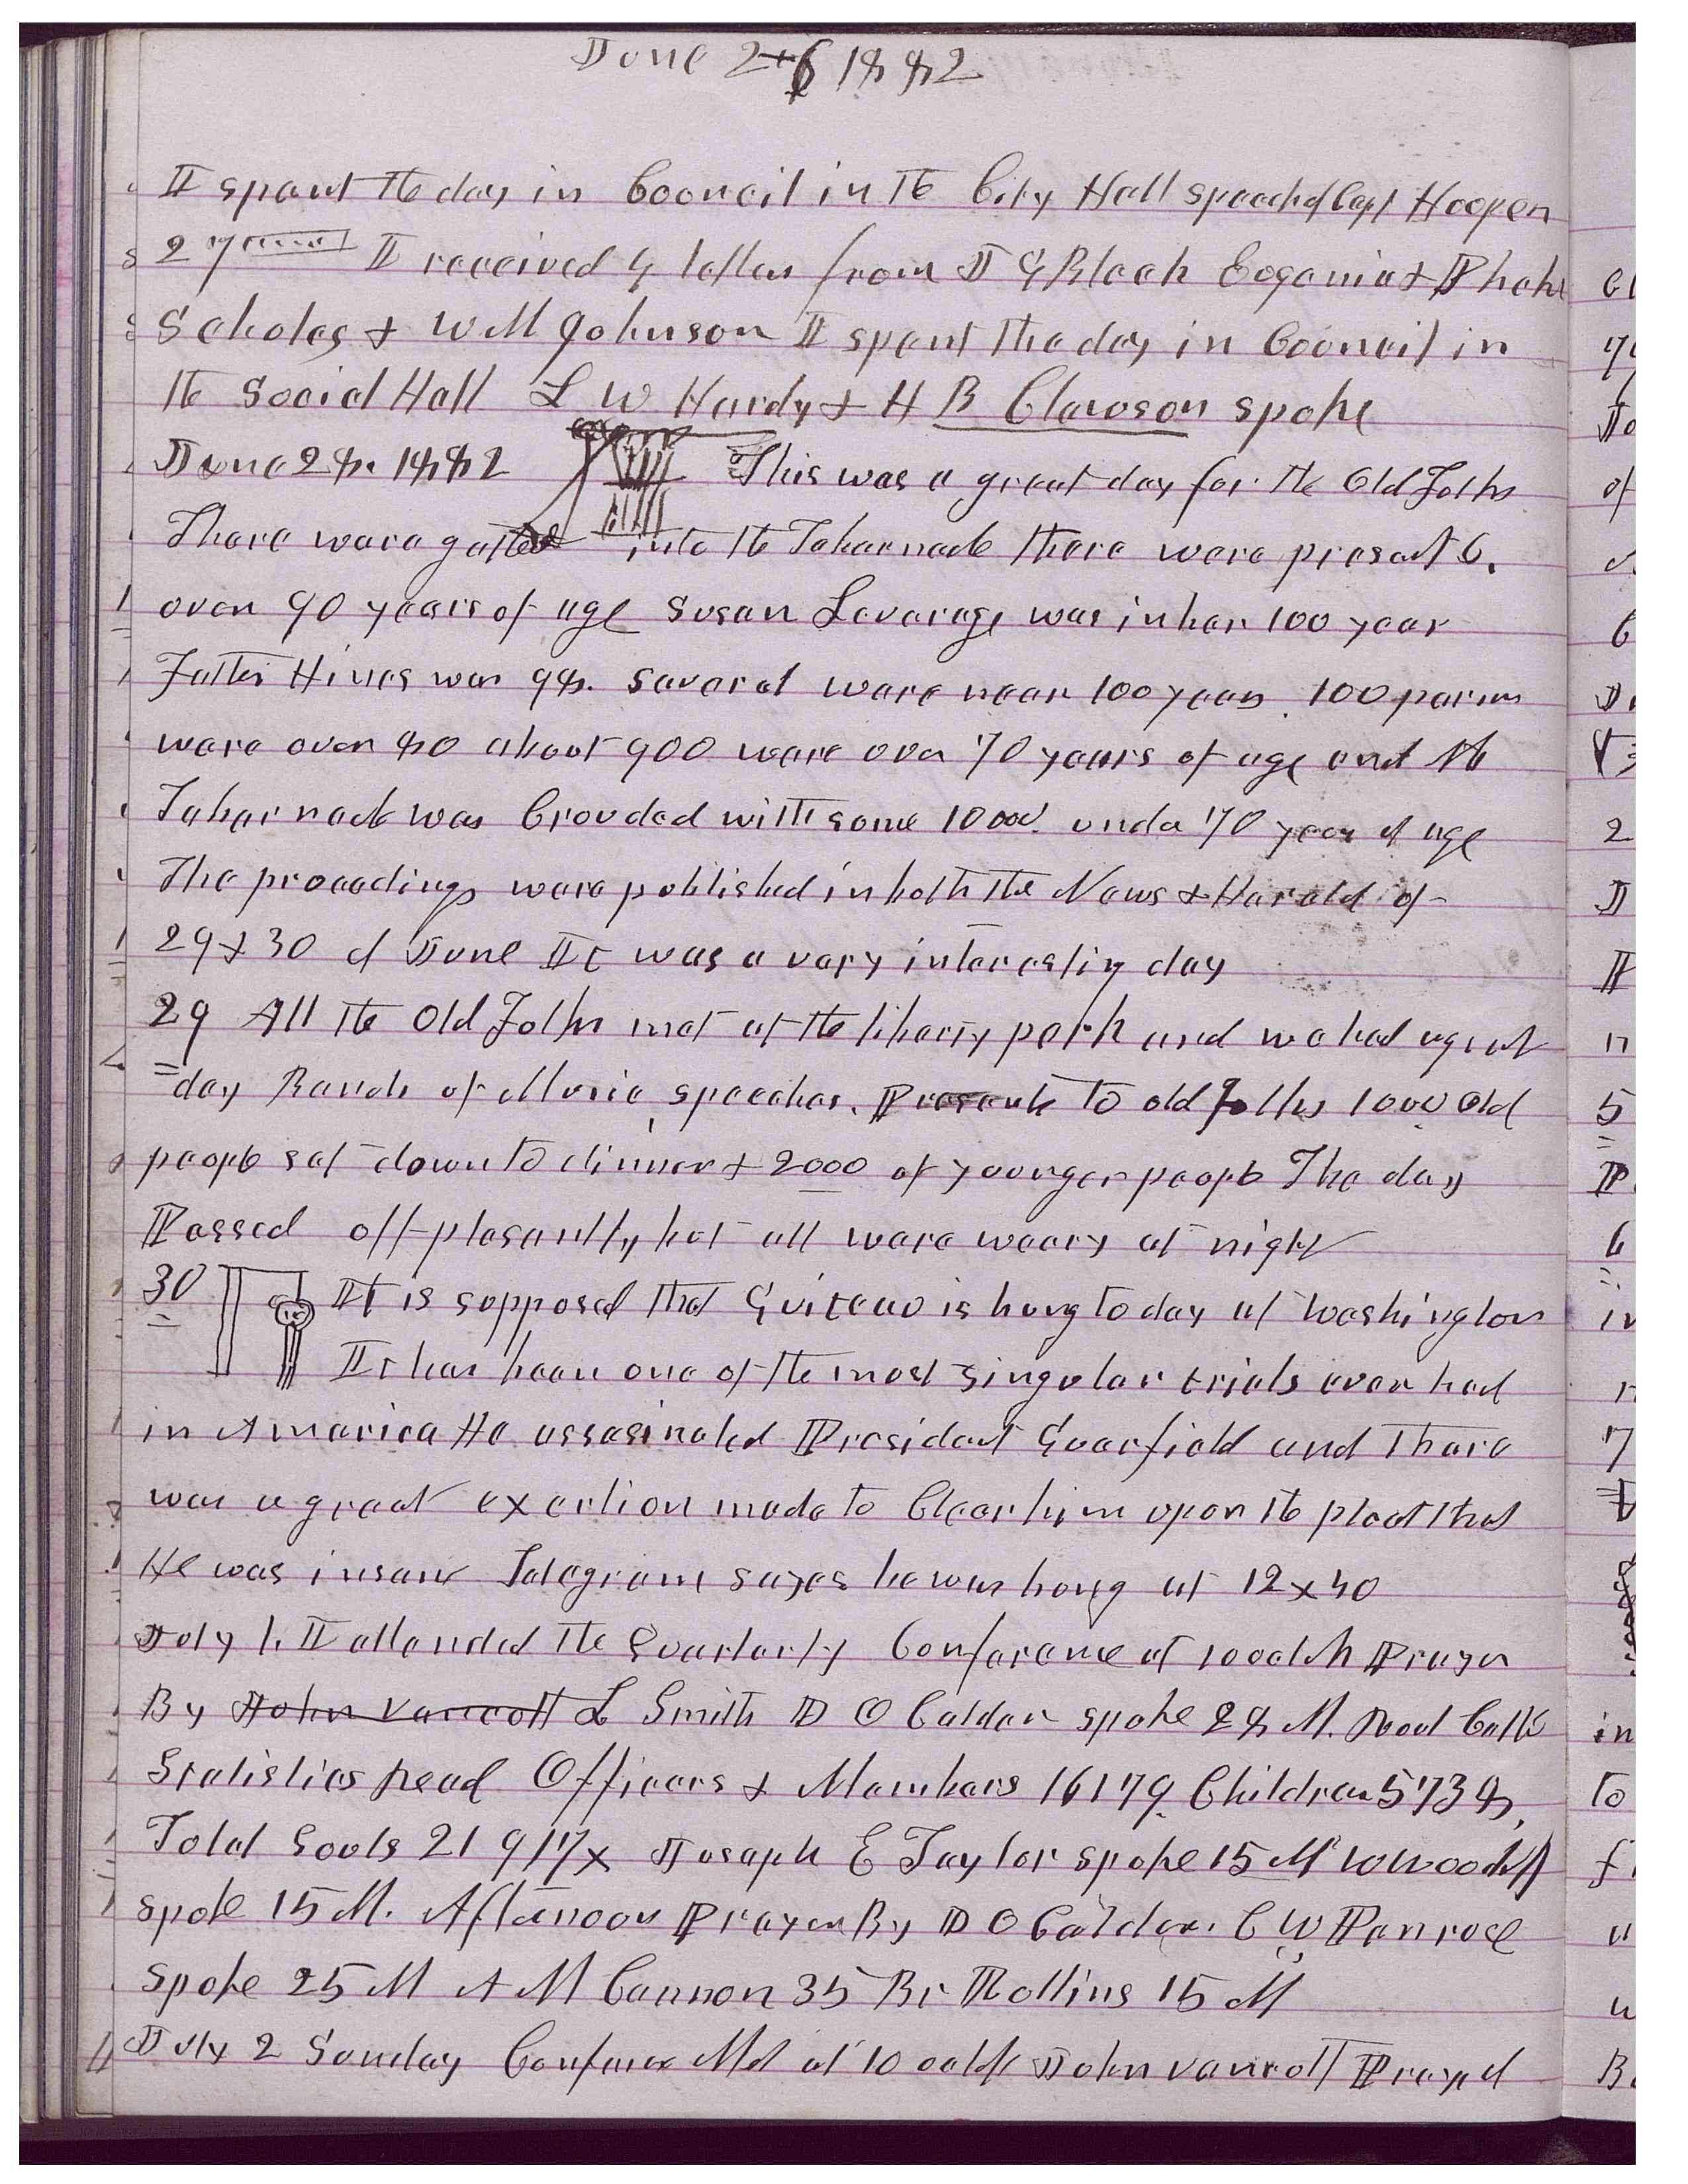 June 26 1882
I spent the day in Council in the City Hall speech of Capt Hooper
27 I received 4 letters from J G Bleak Eugenia & Phebe
Scholes & W M Johnson I spent the day in Council in
the Social Hall L W Hardy & H B Clawson spoke
June 28. 1882 This was a great day for the Old Folks
There were gathered into the Tabernacle there were present 6.
over 90 years of age Susan Leverage was in her 100 year
Father Hines was 98. Several were near 100 years. 100 persons
were over 80 about 900 were over 70 years of age and the
Tabernacle was Crouded with some 10000 under 70 years of age
The proceedings were published in both the News & Herald of
29 & 30 of June It was a very interesting day
29 All the Old Folks met at the liberty park and we had a great
day Bands of Music, speeches. Presents to old folks 1000 Old
people sat down to dinner & 2000 of younger people The day
Passed off plesantly, but all were weary at night
30 It is supposed that Guiteau is hung to day at Washington
It has been one of the most singular trials ever had
in America He assasinated President Guarfield and there
was a great exertion made to Clear him upon the pleat that
He was insane Telegram sayes he was hung at 12 x 40
July 1. I attended the Quarterly Conference at 10 oclok Prayer
By John Vancott L Smith D O Calder spoke 28 M. Read
Statistics read Officers & Members 16179. Children 5738,
Total Souls 21917 x Joseph E Taylor spoke 15 M W Woodruff
spoke 15 M. Afternoon Prayer By D O Calder. C W Penrose
spoke 25 M A M Cannon 35 Br Rollins 15 M
July 2 Sunday Conference Met at 10 oclok John Vancott Prayed